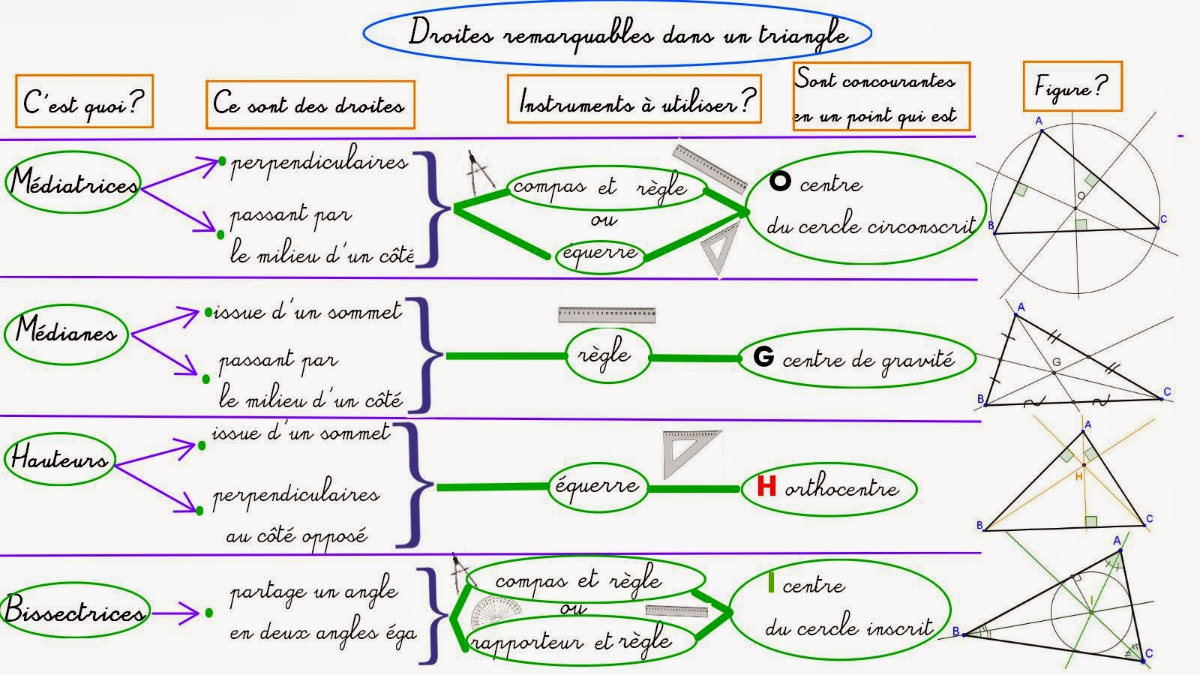 Droites remarquables dans un triangle
C'est quoi?
Ce sont des droites
Instruments à utiliser?
Sont concourantes
en un point qui est
Figure?
Médiatrices
perpendiculaires
passant par
le milieu d'un côté
compas et règle
ou
équerre
O centre
du cercle circonscrit
A
O
B
C
Médianes
issue d'un sommet
passant par
le milieu d'un côté
règle
G centre de gravité
A
G
B
C
Hauteurs
issue d'un sommet
perpendiculaires
au côté opposé
équerre
H orthocentre
A
H
B
C
Bissectrices
partage un angle
en deux angles éga
compas et règle
ou
rapporteur et règle
I centre
du cercle inscrit
A
I
B
C